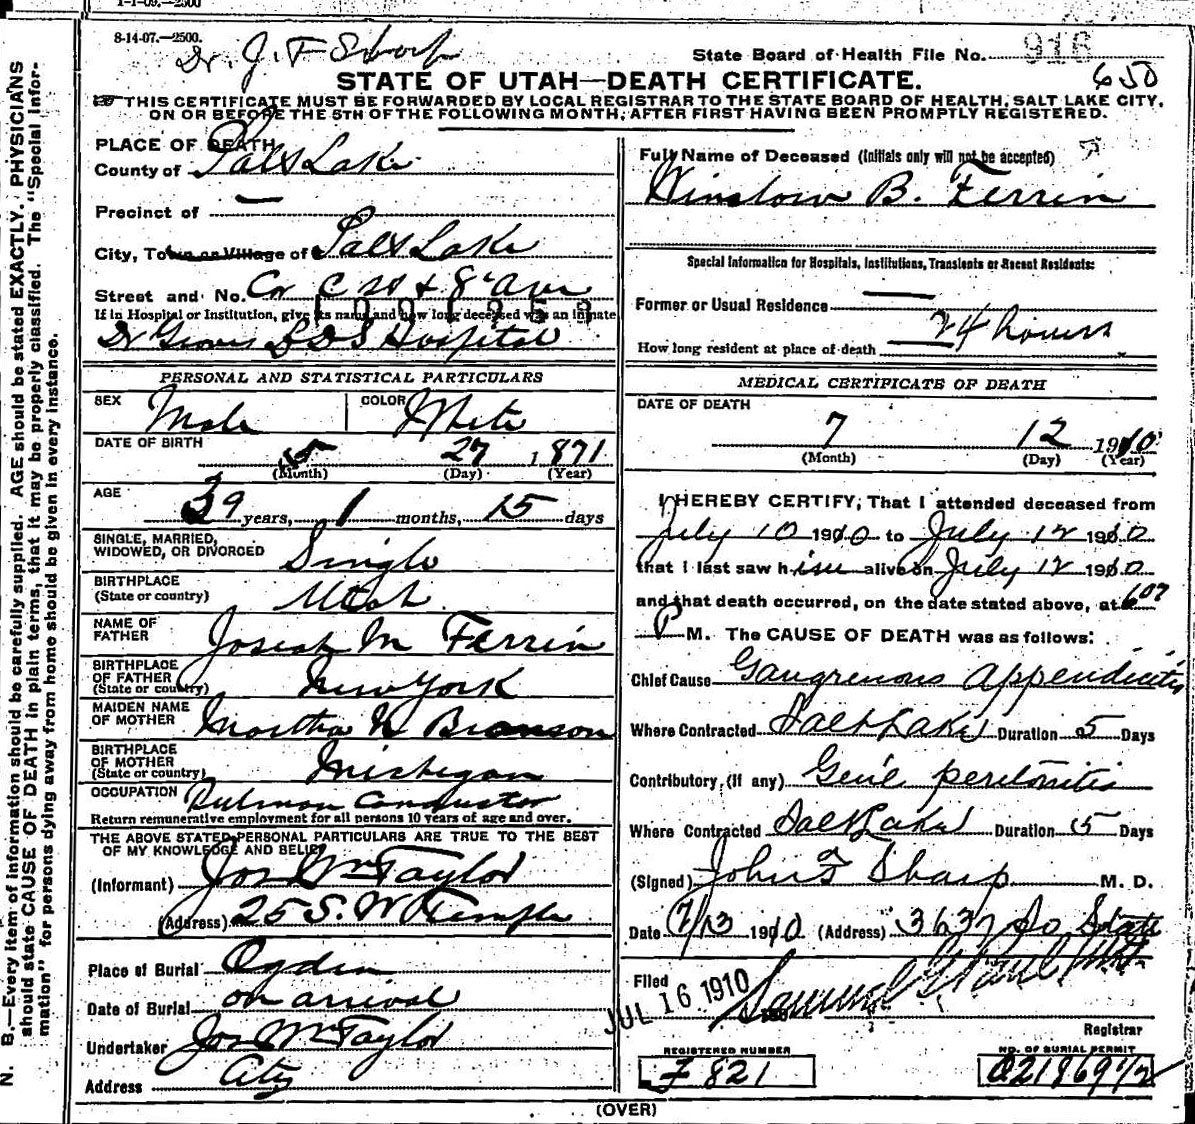 1-1-09.—2500
8-14-07.—2500.
Dr. J. F. Sharp
State Board of Health File No. 916
650
STATE OF UTAH—DEATH CERTIFICATE.
THIS CERTIFICATE MUST BE FORWARDED BY LOCAL REGISTRAR TO THE STATE BOARD OF HEALTH, SALT LAKE CITY,
ON OR BEFORE THE 5TH OF THE FOLLOWING MONTH, AFTER FIRST HAVING BEEN PROMPTLY REGISTERED.
N. B.—Every item of information should be carefully supplied. AGE should be stated EXACTLY. PHYSICIANS
should state CAUSE OF DEATH in plain terms, that it may be properly classified. The "Special Infor-
mation" for persons dying away from home should be given in every instance.
PLACE OF DEATH
County of Salt Lake
Precinct of —
City, Town or Village of Salt Lake
Street and No. Cor C St & 8th Ave
If in Hospital or Institution, give its name and how long deceased was an inmate
Dr Groves LDS Hospital
PERSONAL AND STATISTICAL PARTICULARS
SEX Male COLOR White
DATE OF BIRTH
5 27 1871
(Month) (Day) (Year)
AGE
39 years, 1 months, 15 days
SINGLE, MARRIED,
WIDOWED, OR DIVORCED Single
BIRTHPLACE
(State or country) Utah
NAME OF
FATHER Josiah M Ferrin
BIRTHPLACE
OF FATHER
(State or country) New York
MAIDEN NAME
OF MOTHER Martha N Bronson
BIRTHPLACE
OF MOTHER
(State or country) Michigan
OCCUPATION Pulman Conductor
Return remunerative employment for all persons 10 years of age and over.
THE ABOVE STATED PERSONAL PARTICULARS ARE TRUE TO THE BEST
OF MY KNOWLEDGE AND BELIEF
(Informant) Jos Wm Taylor
(Address) 25 S. W Temple
Place of Burial Ogden
Date of Burial on arrival
Undertaker Jos Wm Taylor
Address City
Full Name of Deceased (Initials only will not be accepted)
Winslow B. Ferrin
Special Information for Hospitals, Institutions, Transients or Recent Residents:
Former or Usual Residence —
How long resident at place of death 24 hours
MEDICAL CERTIFICATE OF DEATH
DATE OF DEATH
7 12 1910
(Month) (Day) (Year)
I HEREBY CERTIFY, That I attended deceased from
July 10 1910 to July 12 1910
that I last saw him alive on July 12 1910
and that death occurred, on the date stated above, at 607
P M. The CAUSE OF DEATH was as follows:
Chief Cause Gangrenous appendicitis
Where Contracted Salt Lake Duration 5 Days
Contributory, (If any) Genl peritonitis
Where Contracted Salt Lake Duration 5 Days
(Signed) John F Sharp M. D.
Date 7/13 1910 (Address) 3637 So State
Filed JUL 16 1910
Registrar
REGISTERED NUMBER
F 821
NO. OF BURIAL PERMIT
021869 1/2
(OVER)